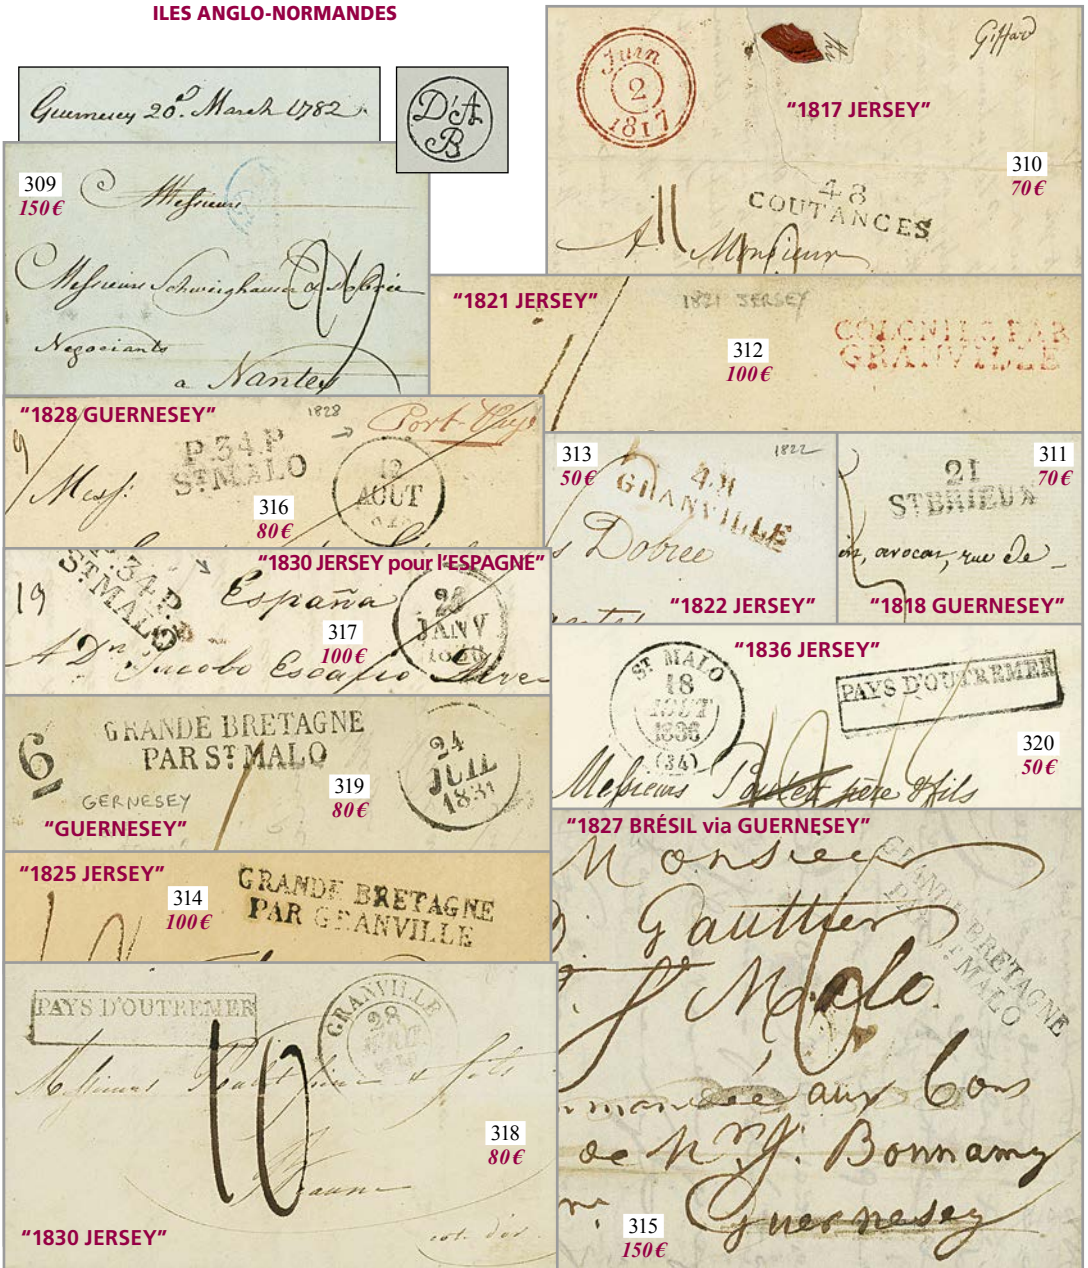 ILES ANGLO-NORMANDES
Guernesey 20d. March 1782
D'A
B
309
150 €
Messieurs
Messieurs Schweighauser & Dobrée
Negociants
a Nantes
Juin
2
1817
Giffard
"1817 JERSEY"
310
70 €
48
COUTANCES
A Monsieur
"1821 JERSEY"
1821 JERSEY
312
100 €
COLONIES PAR
GRANVILLE
"1828 GUERNESEY"
1828
Port Payé
P.34.P
ST MALO
AOUT
Mess.
316
80 €
313
50 €
1822
48
GRANVILLE
Dobree
"1822 JERSEY"
311
70 €
21
ST BRIEUX
avocat, rue de
"1818 GUERNESEY"
"1830 JERSEY pour l'ESPAGNE"
P.34.P.
ST MALO
19
España
28
JANV
1830
317
100 €
A Dn Jacobo Escario
"1836 JERSEY"
ST MALO
18
AOUT
1836
(34)
PAYS D'OUTREMER
320
50 €
Messieurs père & fils
6
GRANDE BRETAGNE
PAR ST MALO
24
JUIL
1831
319
80 €
GERNESEY
"GUERNESEY"
"1825 JERSEY"
314
100 €
GRANDE BRETAGNE
PAR GRANVILLE
"1827 BRÉSIL via GUERNESEY"
Monsieur
Gautier
St Malo
GRANDE BRETAGNE
PAR ST MALO
aux bons
de Mr. J. Bonnamy
Guernesey
315
150 €
PAYS D'OUTREMER
GRANVILLE
28
Messieurs
& fils
10
Beaune
cot. d'or
318
80 €
"1830 JERSEY"